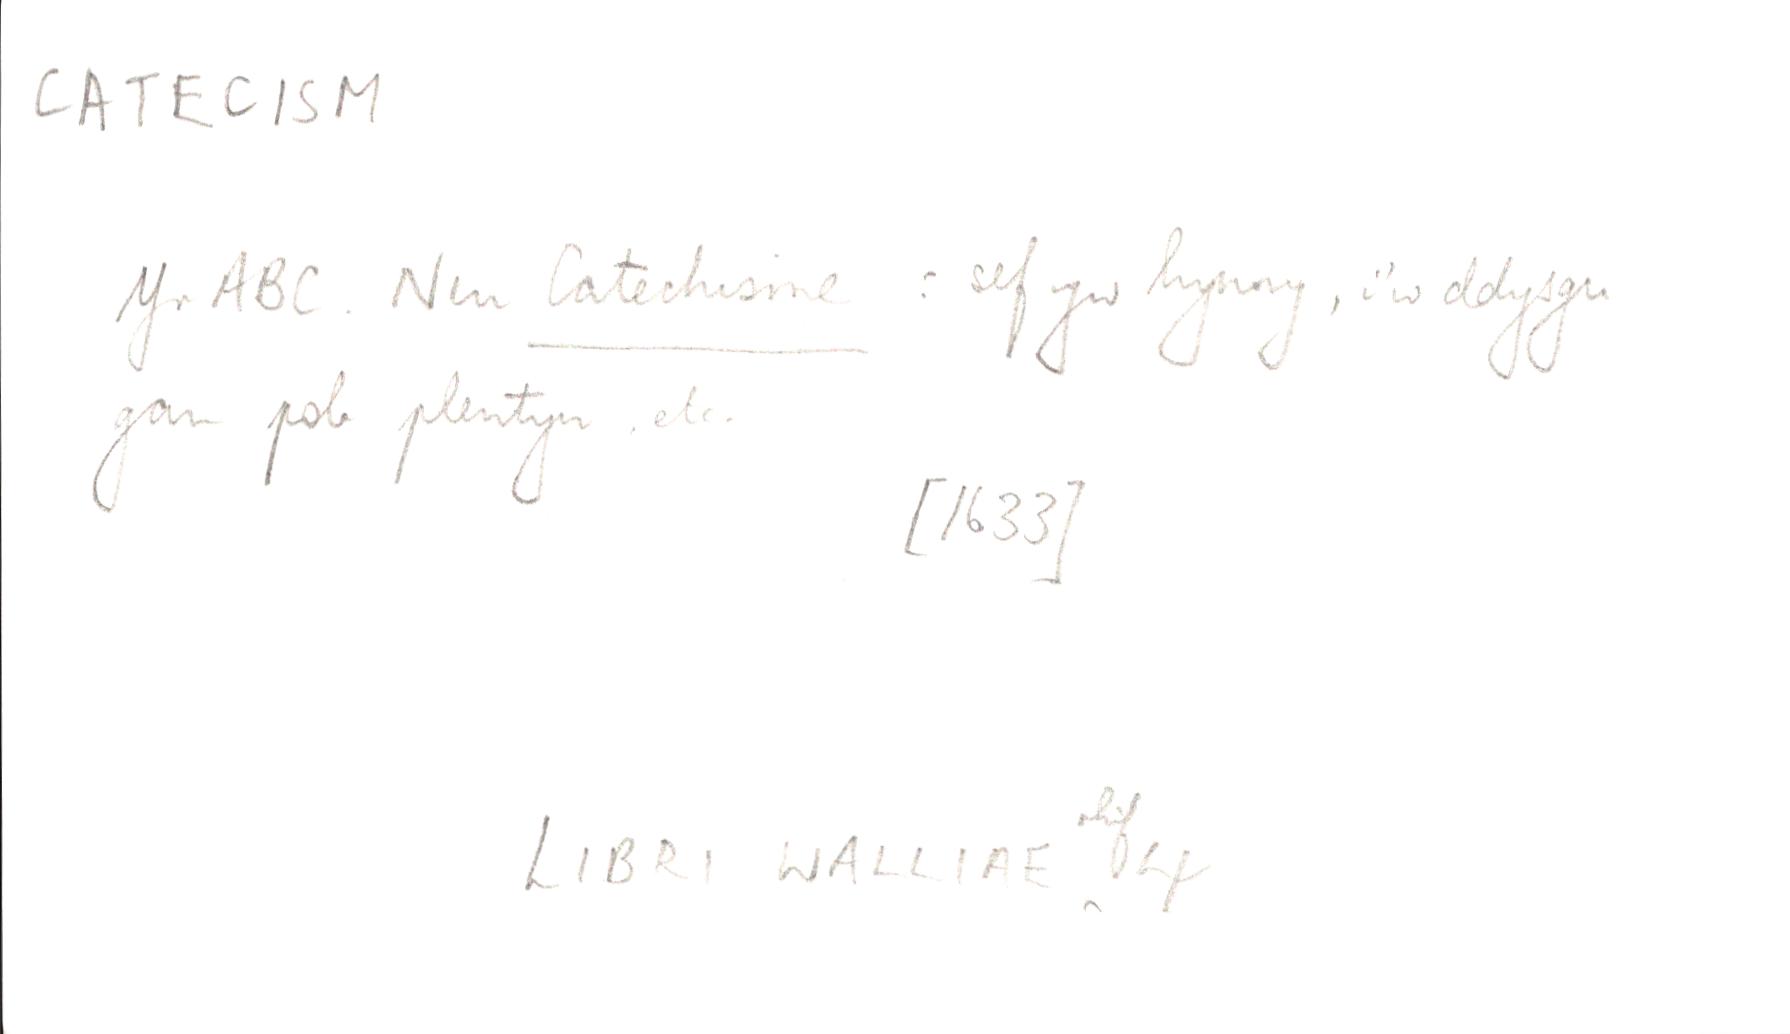 CATECISM
Yr ABC. Neu Catechisme : sef yw hynny, i'w ddysgu
gan pob plentyn, etc.
[1633]
LIBRI WALLIAE rhif 24